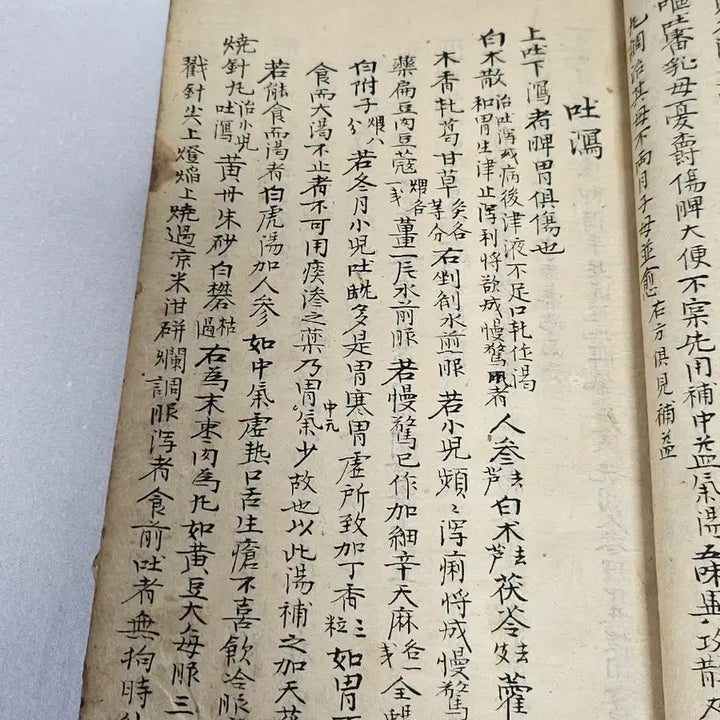 嘔吐審乳母憂鬱傷脾大便不宲先用補中益氣湯五味異功散
九調治其母不兩月子母並愈右方俱見補益
吐瀉
上吐下瀉者脾胃俱傷也
白术散治吐瀉或病後津液不足口乾作渴和胃生津止瀉利將欲成慢驚風者人參去芦白术去芦茯苓去皮藿
木香乾葛甘草炙各等分右剉剂水煎服若小児頻〻瀉痢將成慢驚
藥扁豆肉豆蔻煨各一戋薑一辰水前服若慢驚已作加細辛天麻各一戋全蝎
白附子煨八分若冬月小児吐㿜多是胃寒胃虛所致加丁香三粒如胃
食而大渴不止者不可用瘓滲之藥乃胃氣中元少故也以此湯補之加天
若能食而渴者白虎湯加人參如中氣虛热口舌生瘡不喜飲冷服
燒針九治小児吐瀉黄丹朱砂白礬枯過右為末枣肉為九如黄豆大每服三
戳針尖上燈焰上燒過凉米泔研爛調服瀉者食前吐者無拘時